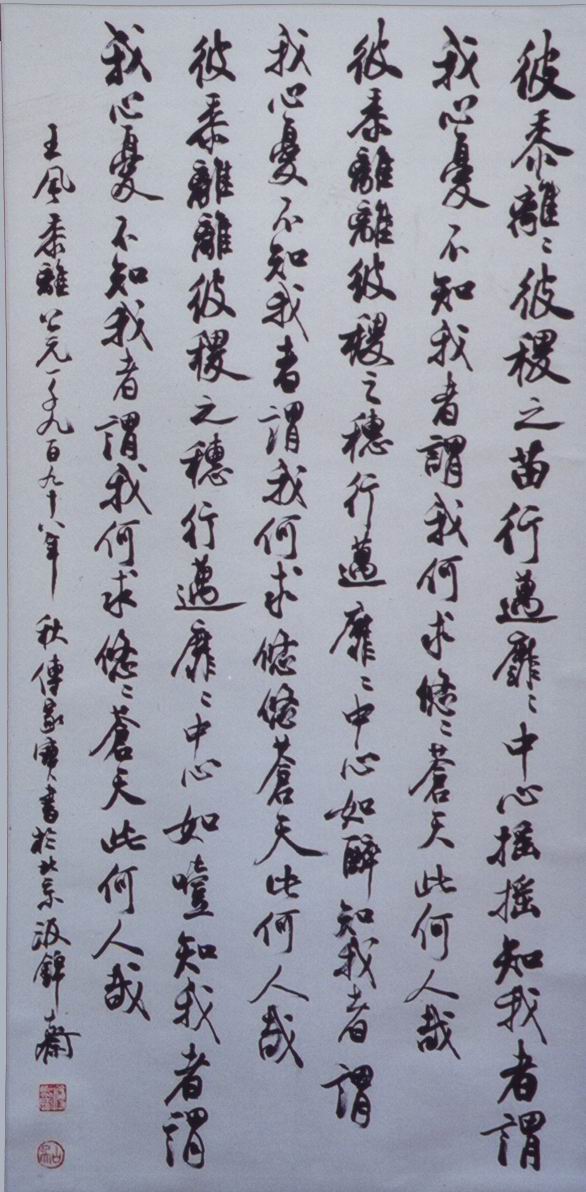 彼黍離〻彼稷之苗行邁靡〻中心搖搖知我者謂
我心憂不知我者謂我何求悠〻蒼天此何人哉
彼黍離離彼稷之穗行邁靡〻中心如醉知我者謂
我心憂不知我者謂我何求悠悠蒼天此何人哉
彼黍離離彼稷之穗行邁靡〻中心如噎知我者謂
我心憂不知我者謂我何求悠〻蒼天此何人哉
王風黍離公元一千九百九十八年秋傅家寶書於北京汲錦齋